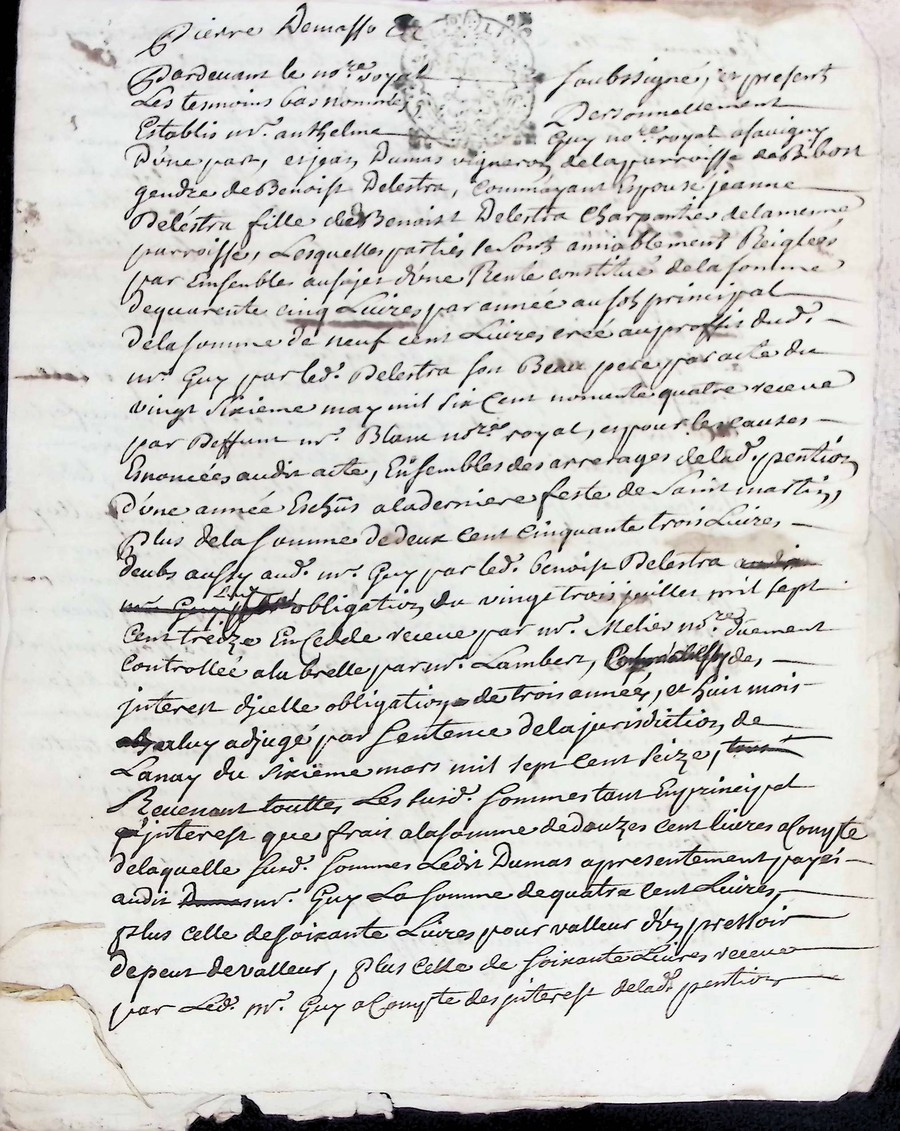 Pierre Demasso
Pardevant le no.re royal soubssigné, et presents
Les tesmoins bas nommés Personnellement
Establis mr. anthelme Guy no.re royal a savigny
D'une part, et jean Dumas vigneron de la parroisse de Bibost
gendre de Benoist Delestra, comm ayant Espousé jeanne
Deléstra fille de Benoist Delestra Charpantier de la mesme
parroisse, Lesquelles parties se sont amiablement Reiglées
par Ensembles au sujet d'une Rente constitué de la somme
de quarente cinq Livres par année au sol principal
de la somme de neuf cent Livres créé au proffit dud.
mr. Guy par led. Delestra son Beau pere par acte du
vingt sixieme may mil six cent nonente quatre receue
par Deffunt mr. Blanc no.re royal, et pour les causes
Esnoncées audit acte, Ensembles des arrerages de lad. pention
d'une année Eschus a la derniere feste de Saint martin,
Plus de la somme de deux cent cinquante trois Livres,
deubs aussy aud. mr. Guy par led. benoist Delestra audit
mr Guy par obligation du vingt trois juillet mil sept
cent treize En cedde receue par mr. Melier no.re duement
controllée a la brelle par mr. Lambert, de
jnterest d'jcelle obligation de trois années, et huit mois
a luy adjugé par sentence de la jurisdiction de
Lanay du sixieme mars mil sept cent seize, tout
Revenant touttes Les susd. sommes tant En principal
jnterest que frais a la somme de douzes cent livres a Compte
de laquelle susd. somme Ledit Dumas a presentement payés
audit Dumas mr. Guy La somme de quatre cent Livres,
plus celle de soixante Livres pour valleur d'un pressoir
de peut de valleur, plus celle de soixante Livres receue
par Led. mr. Guy a Compte des jnterest de lad. pention